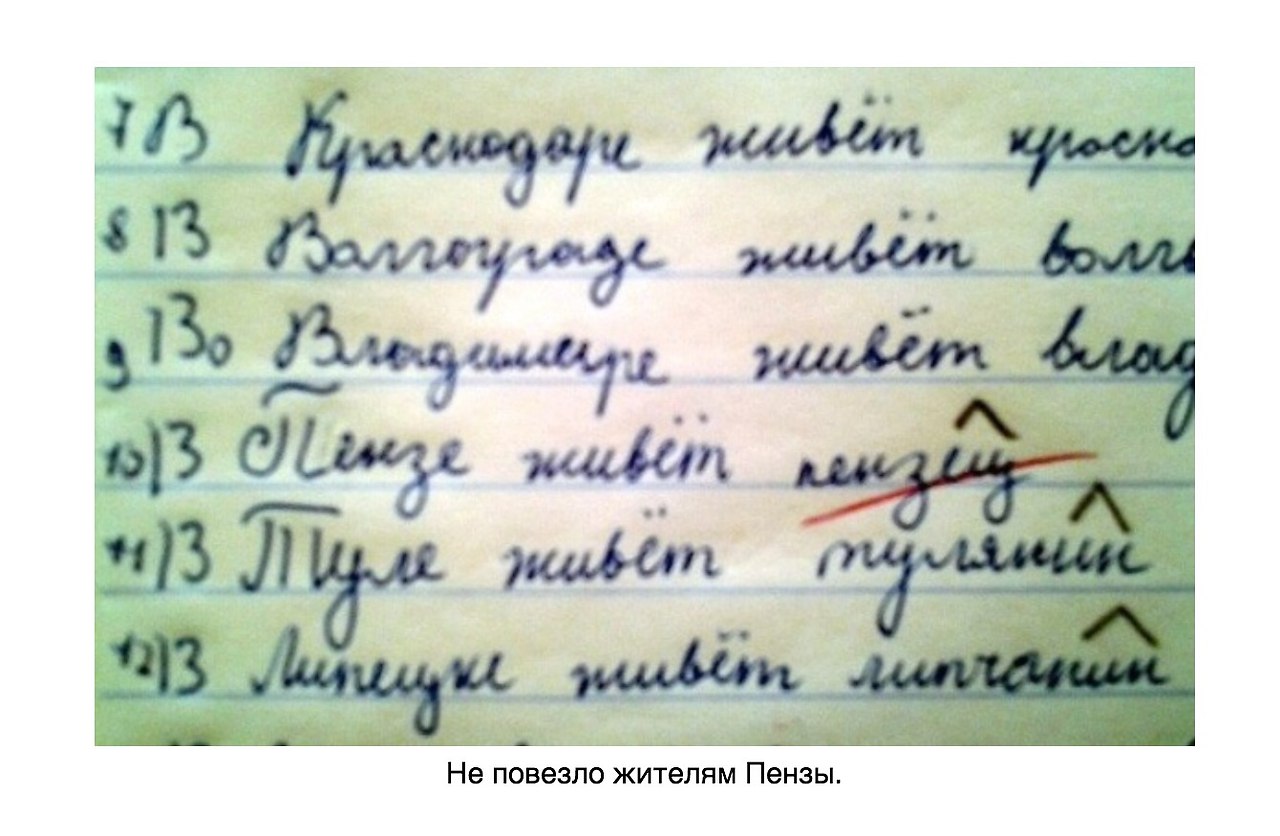 7 В Краснодаре живёт красно
8 В Волгограде живёт волг
9 Во Владимире живёт влад
10) В Пензе живёт пензец
11) В Туле живёт тулянин
12) В Липецке живёт липчанин
Не повезло жителям Пензы.